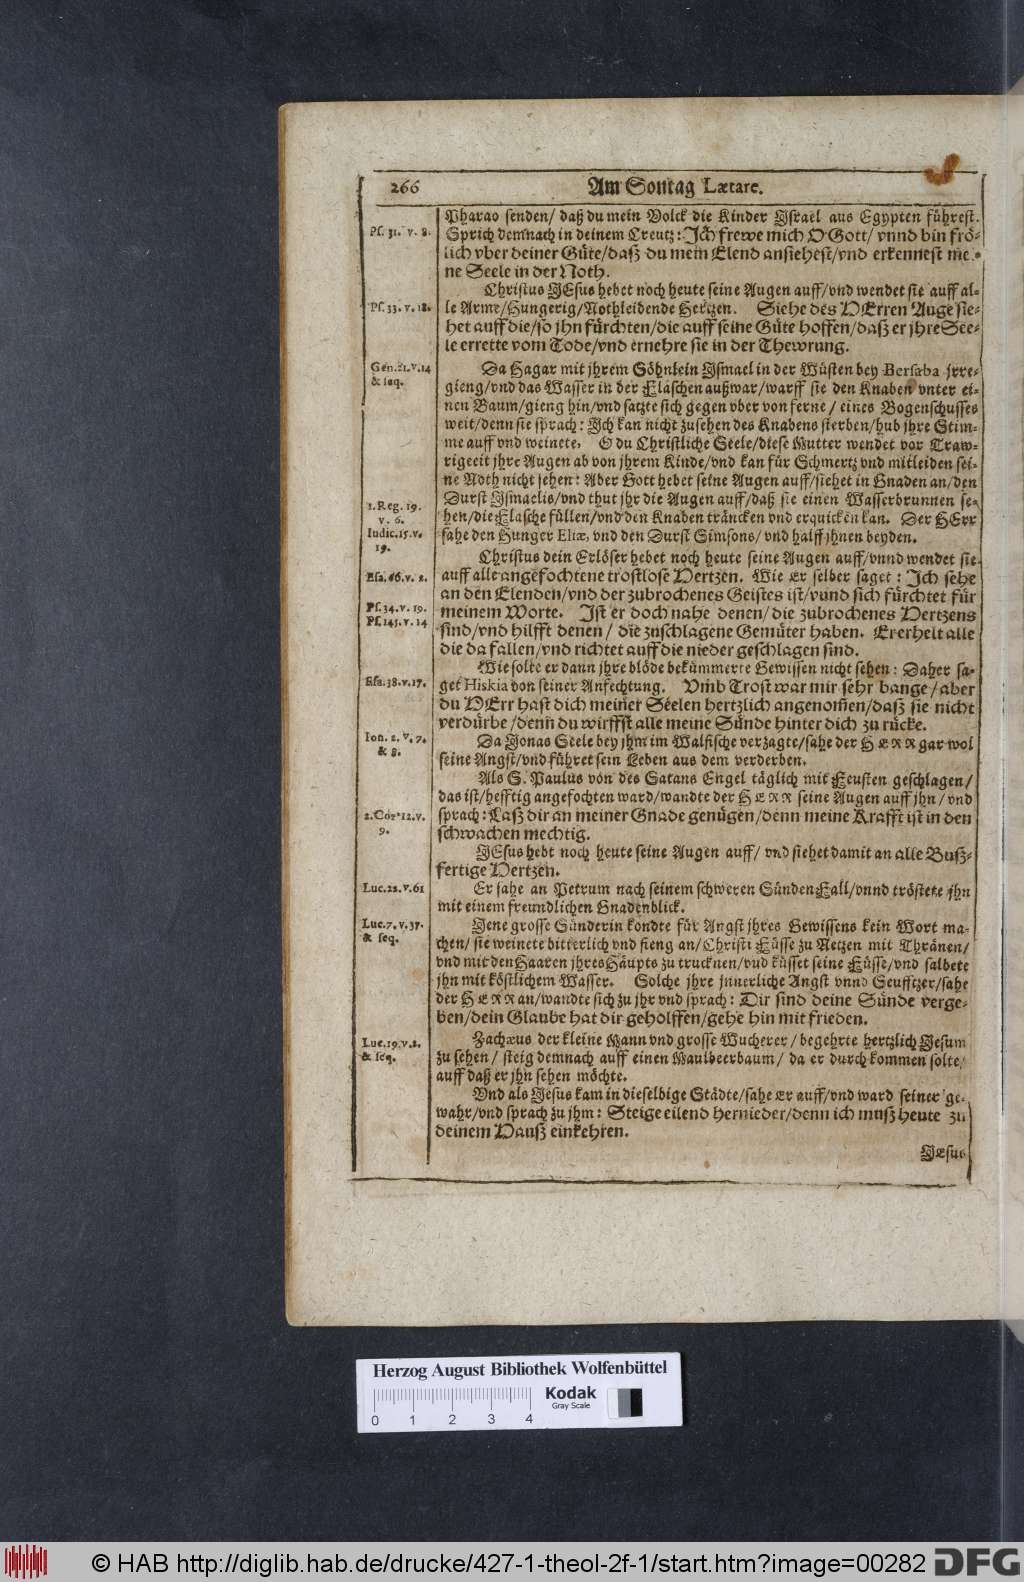 266 Am Sontag Lætare.
Pharao senden/ daß du mein Volck die Kinder Israel aus Egypten führest.
Ps. 31. v. 8. Sprich demnach in deinem Creutz: Ich frewe mich O Gott/ vnnd bin frö-
lich vber deiner Güte/daß du mein Elend ansiehest/vnd erkennest mei-
ne Seele in der Noth.
Christus JEsus hebet noch heute seine Augen auff/vnd wendet sie auff al-
Ps. 33. v. 18. le Arme/Hungerig/Nothleidende Hertzen. Siehe des HErren Auge sie-
het auff die/so jhn fürchten/die auff seine Güte hoffen/daß er jhre See-
le errette vom Tode/vnd ernehre sie in der Thewrung.
Gen. 21. v. 14 Da Hagar mit jhrem Söhnlein Ismael in der Wüsten bey Bersæba jrre-
& seq. gieng/vnd das Wasser in der Flaschen außwar/warff sie den Knaben vnter ei-
nen Baum/gieng hin/vnd satzte sich gegen vber von ferne/ eines Bogenschusses
weit/denn sie sprach: Ich kan nicht zusehen des Knabens sterben/hub jhre Stim-
me auff vnd weinete. O du Christliche Seele/diese Mutter wendet vor Traw-
rigkeit jhre Augen ab von jhrem Kinde/vnd kan für Schmertz vnd mitleiden sei-
ne Noth nicht sehen: Aber Gott hebet seine Augen auff/siehet in Gnaden an/den
Durst Ismaelis/vnd thut jhr die Augen auff/daß sie einen Wasserbrunnen se-
1. Reg. 19. hen/die Flasche füllen/vnd den Knaben träncken vnd erquicken kan. Der HErr
v. 6.
Iudic. 15. v. sahe den Hunger Eliæ, vnd den Durst Simsons/ vnd halff jhnen beyden.
19.
Christus dein Erlöser hebet noch heute seine Augen auff/vnnd wendet sie
Esa. 66. v. 2. auff alle angefochtene trostlose Hertzen. Wie Er selber saget: Ich sehe
an den Elenden/vnd der zubrochenes Geistes ist/vnnd sich fürchtet für
Ps. 34. v. 19. meinem Worte. Ist er doch nahe denen/ die zubrochenes Hertzens
Ps. 145. v. 14 sind/vnd hilfft denen/ die zuschlagene Gemüter haben. Er erhelt alle
die da fallen/vnd richtet auff die nieder geschlagen sind.
Wie solte er dann jhre blöde bekümmerte Gewissen nicht sehen: Daher sa-
Esa. 38. v. 17. get Hiskia von seiner Anfechtung. Vmb Trost war mir sehr bange/ aber
du HErr hast dich meiner Seelen hertzlich angenomen/daß sie nicht
verdürbe/denn du wirffst alle meine Sünde hinter dich zu rücke.
Ion. 2. v. 7. Da Jonas Seele bey jhm im Walfische verzagte/sahe der HERR gar wol
& 8. seine Angst/vnd führet sein Leben aus dem verderben.
Als S. Paulus von des Satans Engel täglich mit Feusten geschlagen/
das ist/hefftig angefochten ward/wandte der HERR seine Augen auff jhn/ vnd
2. Cor. 12. v. sprach: Laß dir an meiner Gnade genügen/denn meine Krafft ist in den
9. schwachen mechtig.
JEsus hebt noch heute seine Augen auff/ vnd siehet damit an alle Buß-
fertige Hertzen.
Luc. 22. v. 61 Er sahe an Petrum nach seinem schweren Sünden Fall/vnnd tröstete jhn
mit einem freundlichen Gnadenblick.
Luc. 7. v. 37. Jene grosse Sünderin kondte für Angst jhres Gewissens kein Wort ma-
& seq. chen/ sie weinete bitterlich vnd fieng an/Christi Füsse zu Netzen mit Thränen/
vnd mit den Haaren jhres Häupts zu trucknen/vnd küsset seine Füsse/vnd salbete
jhn mit köstlichem Wasser. Solche jhre jnnerliche Angst vnnd Seufftzer/sahe
der HERR an/wandte sich zu jhr vnd sprach: Dir sind deine Sünde verge-
ben/dein Glaube hat dir geholffen/gehe hin mit frieden.
Luc. 19. v. 2. Zachæus der kleine Mann vnd grosse Wucherer/ begehrte hertzlich Jesum
& seq. zu sehen/ steig demnach auff einen Maulbeerbaum/ da er durch kommen solte/
auff daß er jhn sehen möchte.
Vnd als Jesus kam in dieselbige Städte/sahe Er auff/vnd ward seiner ge-
wahr/vnd sprach zu jhm: Steige eilend hernieder/denn ich muß heute zu
deinem Hauß einkehren.
JEsus
Herzog August Bibliothek Wolfenbüttel
Kodak
Gray Scale
0 1 2 3 4
© HAB http://diglib.hab.de/drucke/427-1-theol-2f-1/start.htm?image=00282 DFG